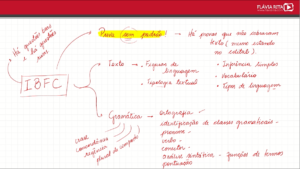 FLÁVIA RITA
Há questões boas
e há questões
ruins
IBFC
Prova sem padrão
Há provas que não cobraram
texto (mesmo estando
no edital)
Texto
Figuras de
linguagem
Tipologia textual
Inferência simples
Vocabulário
Tipos de linguagem
Gramática
ortografia
identificação de classes gramaticais
pronome
verbo
conectivo
análise sintática - funções de termos
pontuação
crase
concordância
regência
plural de compostos